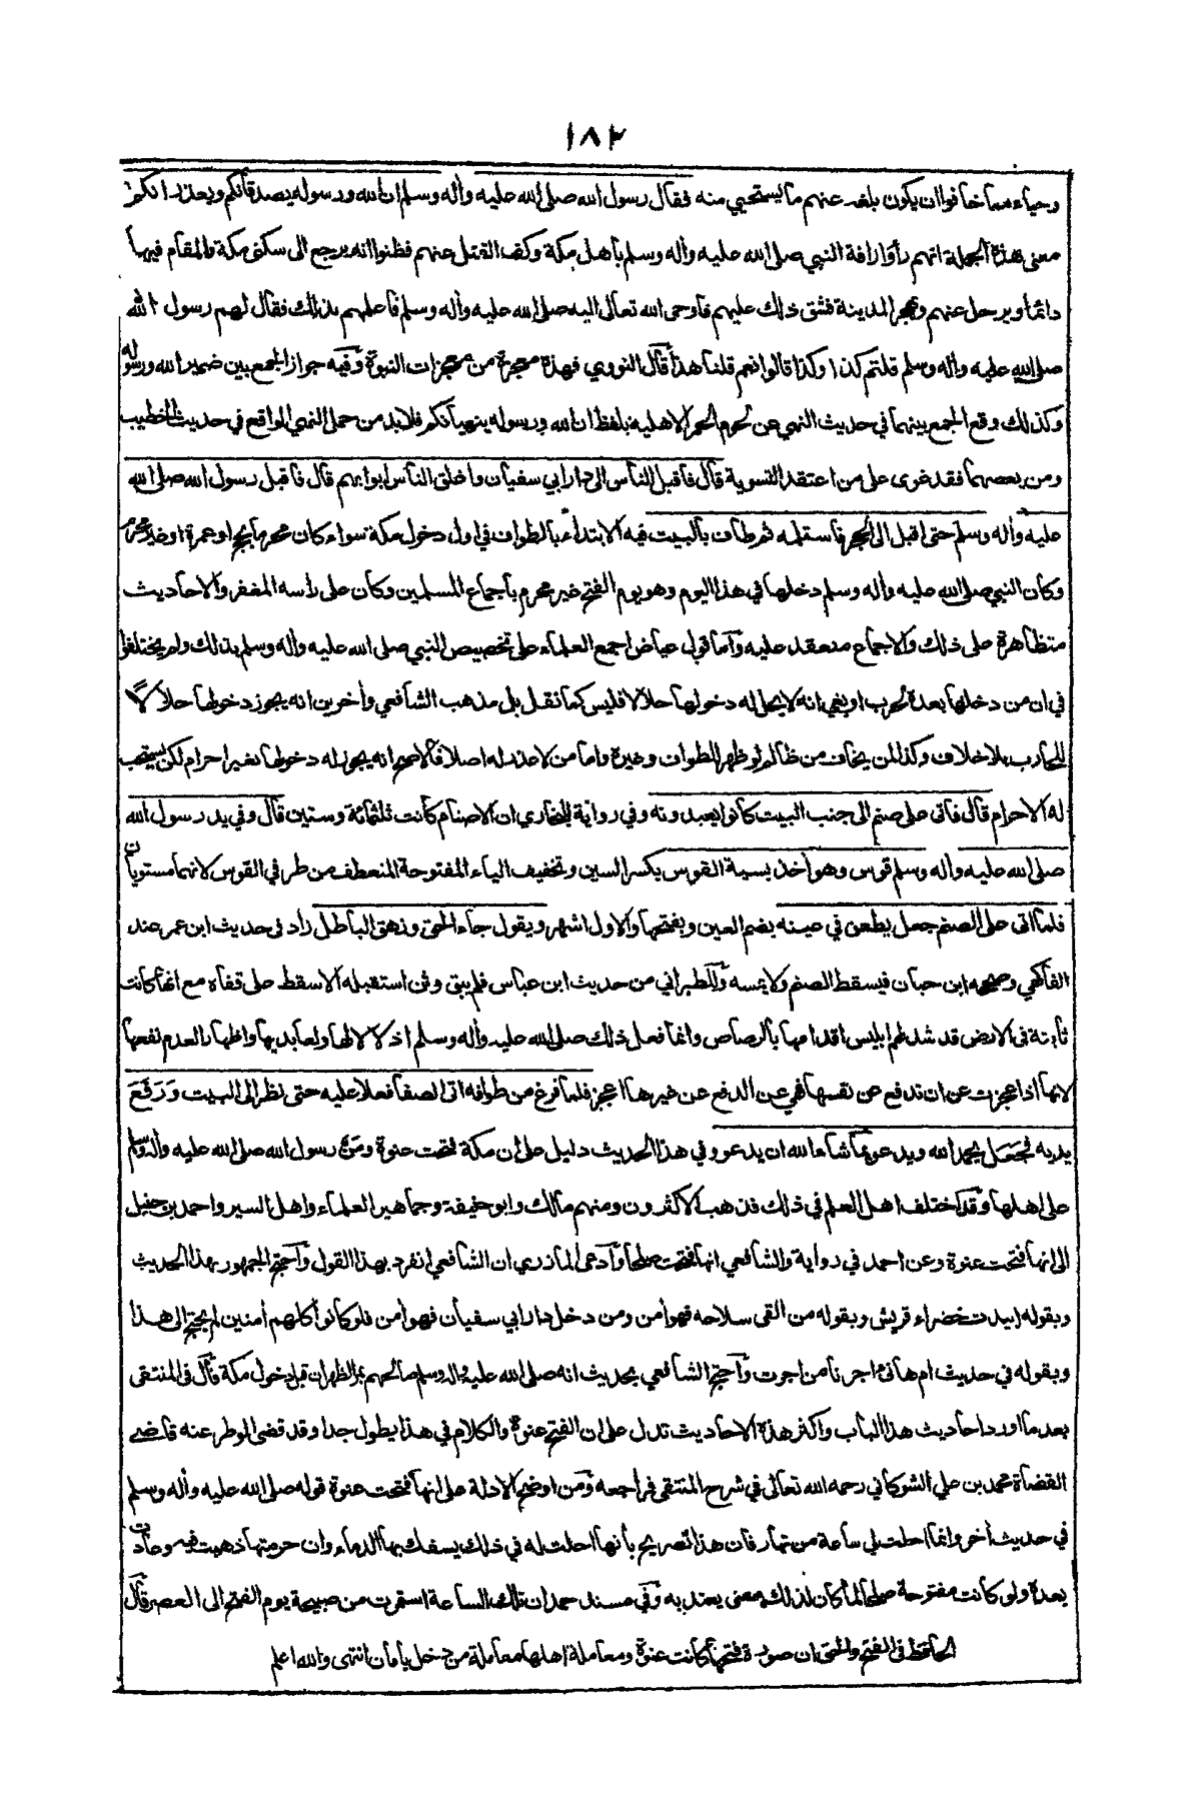 ١٨٢
وحياء مما خافوا ان يكون بلغه عنهم ما يستحيي منه فقال رسول الله صلى الله عليه وأله وسلم ان الله ورسوله يصدقانكم ويعذرانكم
معنى هذه الجملة انهم رأوا رافة النبي صلى الله عليه وأله وسلم بأهل مكة وكف القتل عنهم فظنوا انه يرجع الى سكنى مكة والمقام فيها
دائما ويرحل عنهم ويهجر المدينة فشق ذلك عليهم فاوحى الله تعالى اليه صلى الله عليه وأله وسلم فأعلمهم بذلك فقال لهم رسول الله
صلى الله عليه وأله وسلم قلتم كذا وكذا قالوا نعم قلنا هذا قال النووي فهذه معجزة من معجزات النبوة وفيه جواز الجمع بين ضمير الله ورسوله
وكذلك وقع الجمع بينهما في حديث النهي عن لحوم الحمر الاهلية بلفظ ان الله ورسوله ينهيانكم فلابد من حمل النهي الواقع في حديث الخطيب
ومن يعصهما فقد غوى على من اعتقد التسوية قال فأقبل الناس الى دار ابي سفيان واغلق الناس ابوابهم قال فأقبل رسول الله صلى الله
عليه وأله وسلم حتى اقبل الى الحجر فأستلمه ثم طاف بالبيت فيه الابتداء بالطواف في اول دخول مكة سواء كان محرما بحج او عمرة او غير محرم
وكان النبي صلى الله عليه وأله وسلم دخلها في هذا اليوم وهو يوم الفتح غير محرم بأجماع المسلمين وكان على رأسه المغفر والاحاديث
متظاهرة على ذلك والاجماع منعقد عليه وأما قول عياض اجمع العلماء على تخصيص النبي صلى الله عليه وأله وسلم بذلك ولم يختلفوا
في ان من دخلها بعده لحرب او بغي انه لا يحل له دخولها حلالا فليس كما نقل بل مذهب الشافعي وأخرين انه يجوز دخولها حلالا
للمحارب بلا خلاف وكذا لمن يخاف من ظالم لو ظهر للطواف وغيره واما من لا عذر له اصلا فالاصح انه يجوز له دخولها بغير احرام لكن يستحب
له الاحرام قال فأتى على صنم الى جنب البيت كانوا يعبدونه وفي رواية للبخاري ان الاصنام كانت ثلثمائة وستين قال وفي يد رسول الله
صلى الله عليه وأله وسلم قوس وهو أخذ بسية القوس بكسر السين وتخفيف الياء المفتوحة المنعطف من طرفي القوس لانهما مستويان
فلما اتى على الصنم جعل يطعن في عينه بضم العين وبفتحها والاول اشهر ويقول جاء الحق وزهق الباطل زاد في حديث ابن عمر عند
الفاكهي وصححه ابن حبان فيسقط الصنم ولا يمسه وللطبراني من حديث ابن عباس فلم يبق وثن استقبله الا سقط على قفاه مع انها كانت
ثابتة في الارض قد شد لهم ابليس اقدامها بالرصاص وانما فعل ذلك صلى الله عليه وأله وسلم اذلالا لها ولعابديها واظهارا لعدم نفعها
لانها اذا عجزت عن ان تدفع عن نفسها فهي عن الدفع عن غيرها اعجز فلما فرغ من طوافه اتى الصفا فعلا عليه حتى نظر الى البيت وَرَفَعَ
يديه فجَعَل يحمد الله ويدعو بما شاء الله ان يدعو وفي هذا الحديث دليل على ان مكة فتحت عنوة ومَنَّ رسول الله صلى الله عليه وأله وسلم
على اهلها وقد اختلف اهل العلم في ذلك فذهب الاكثرون ومنهم مالك وابو حنيفة وجماهير العلماء واهل السير واحمد بن حنبل
الى انها فتحت عنوة وعن احمد في رواية والشافعي انها فتحت صلحا وأدعى المازري ان الشافعي انفرد بهذا القول وأحتج الجمهور بهذا الحديث
وبقوله ابيدت خضراء قريش وبقوله من القى سلاحه فهو أمن ومن دخل دار ابي سفيان فهو أمن فلو كانوا كلهم أمنين لم يحتج الى هذا
وبقوله في حديث ام هانئ اجرنا من اجرت وأحتج الشافعي بحديث انه صلى الله عليه وأله وسلم صالحهم بمر الظهران قبل دخول مكة قال في المنتقى
بعد ما اورد احاديث هذا الباب واكثر هذه الاحاديث تدل على ان الفتح عنوة والكلام في هذا يطول جدا وقد قضى الوطر عنه قاضي
القضاة محمد بن علي الشوكاني رحمه الله تعالى في شرح المنتقى فراجعه ومن اوضح الادلة على انها فتحت عنوة قوله صلى الله عليه وأله وسلم
في حديث أخر وانما احلت لي ساعة من نهار فان هذا تصريح بأنها احلت له في ذلك يسفك بها الدماء وان حرمتها ذهبت فيه وعادت
بعده ولو كانت مفتوحة صلحا لما كان لذلك معنى يعتد به وفي مسند حمد ان تلك الساعة استمرت من صبيحة يوم الفتح الى العصر قال
الحافظ في الفتح والحق ان صورة فتحها كانت عنوة ومعاملة اهلها معاملة من دخل بأمان انتهى والله اعلم